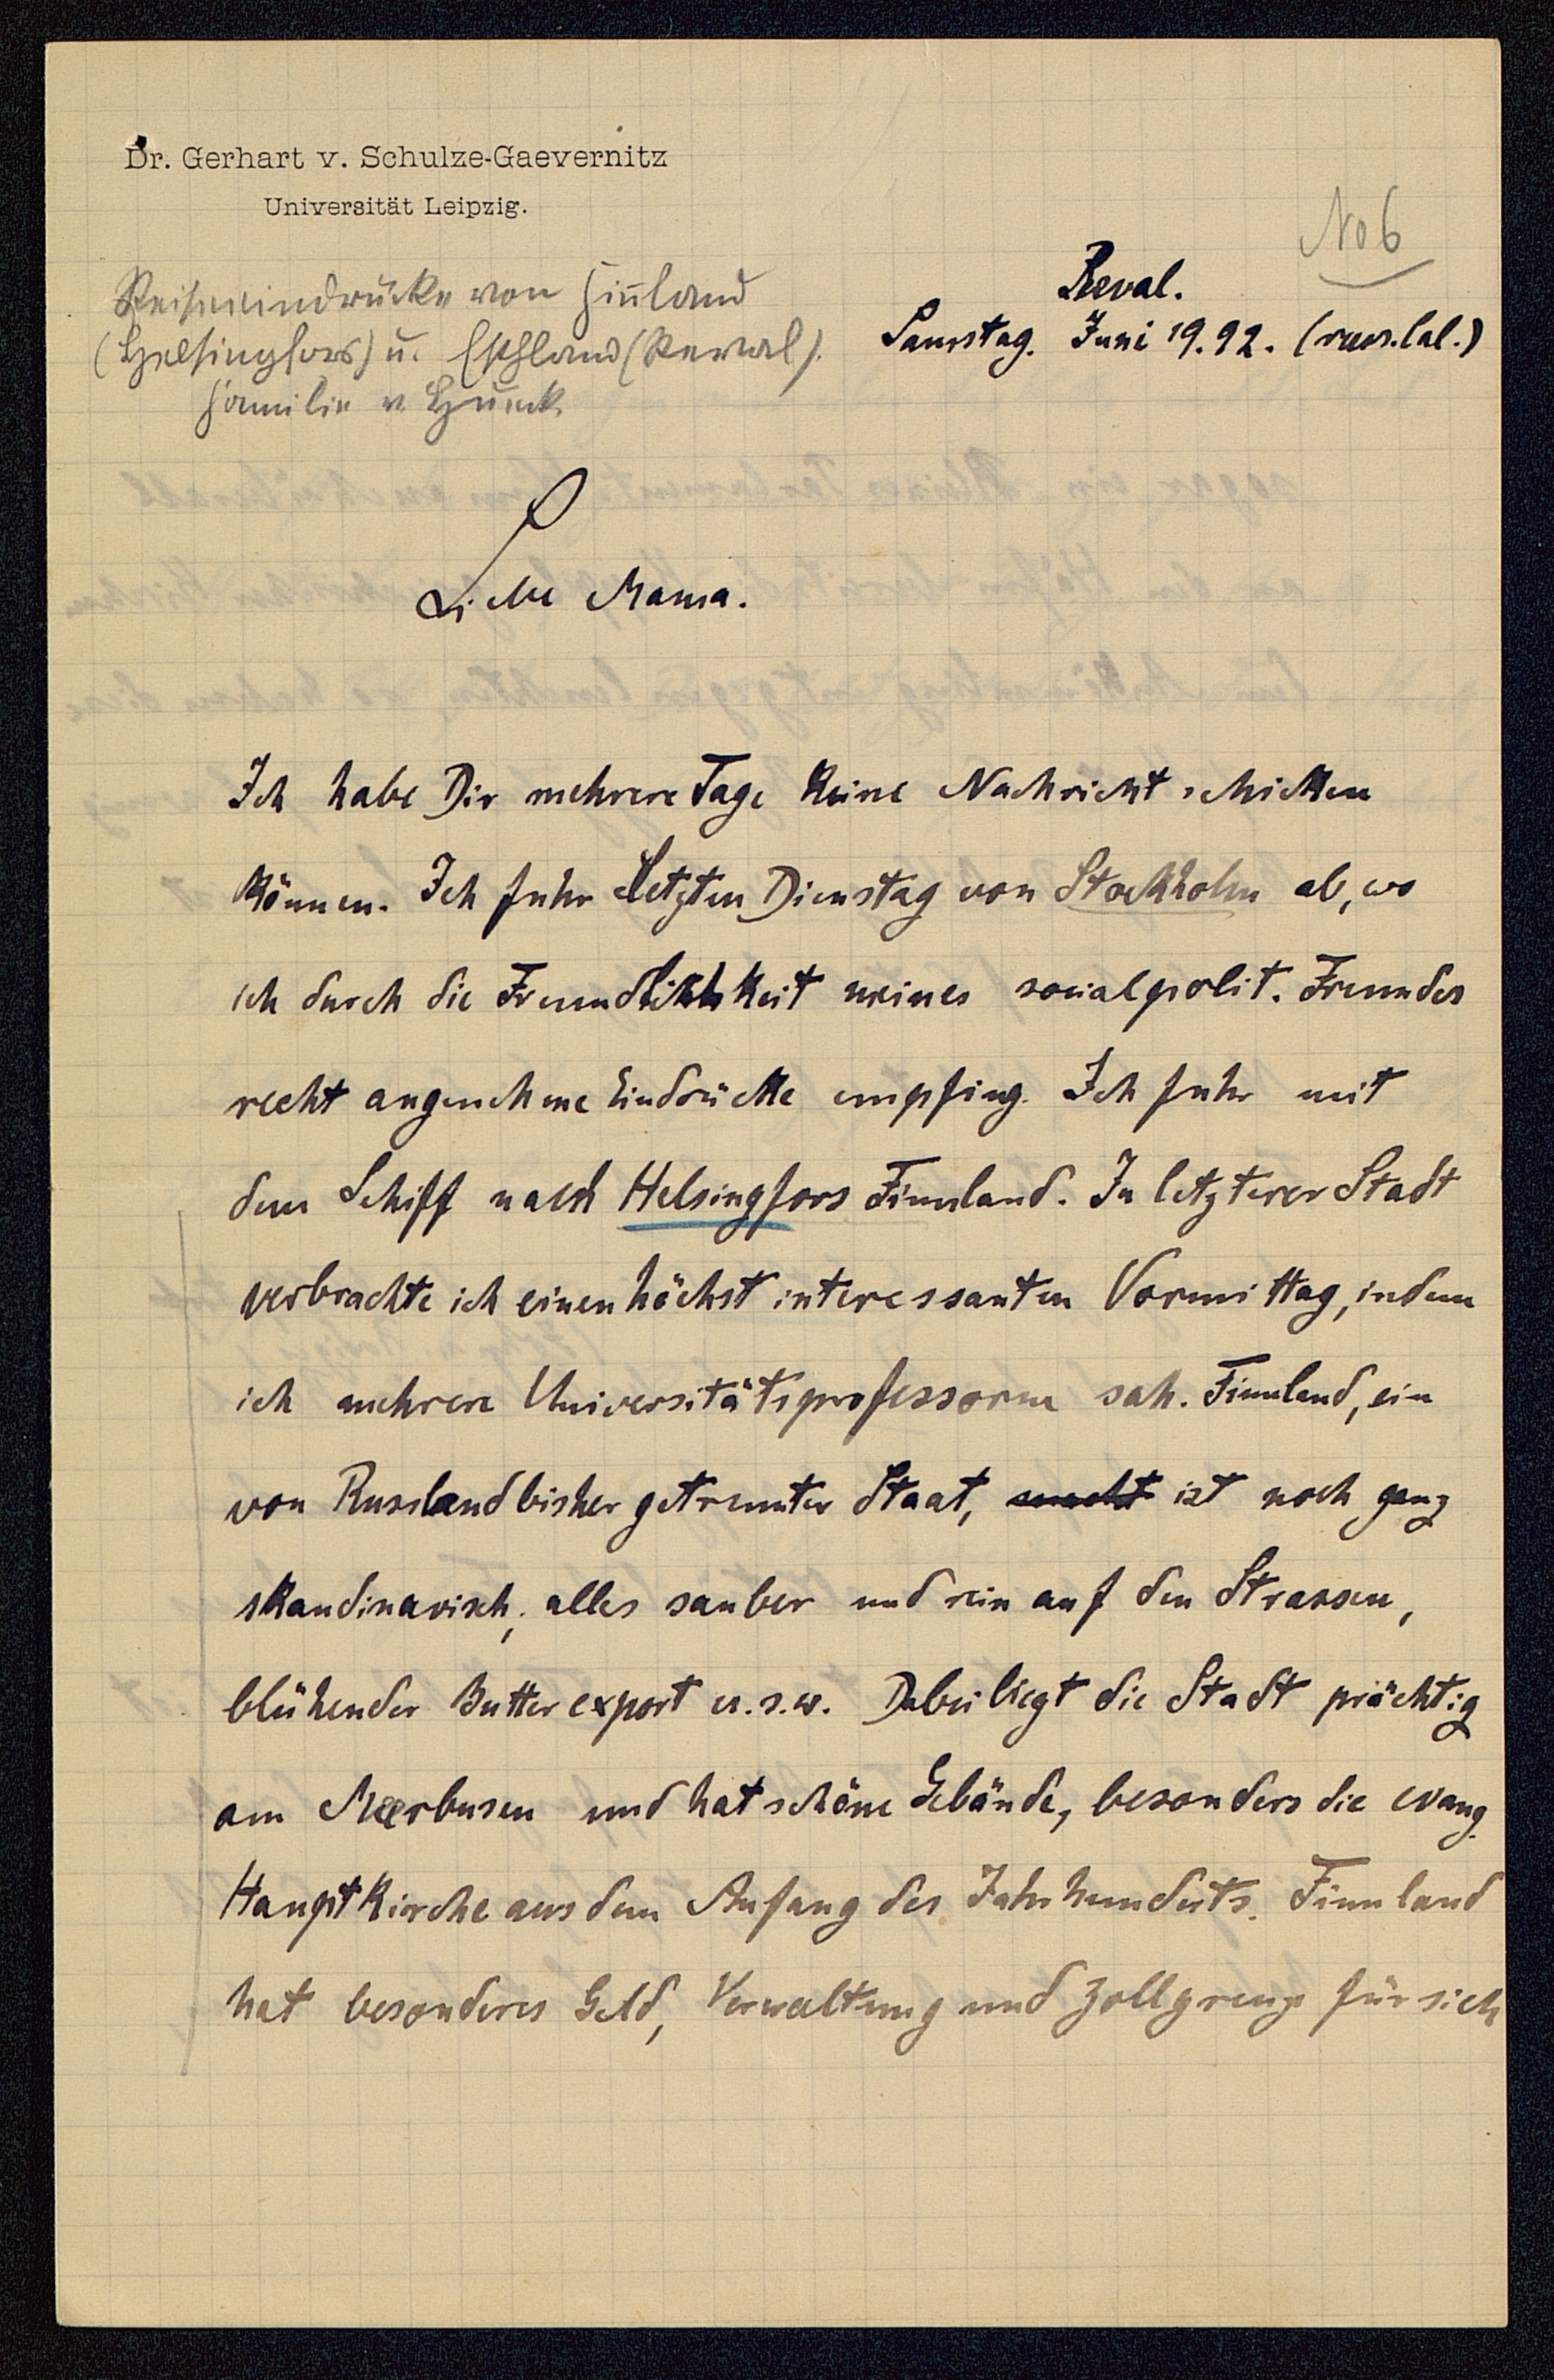 Dr. Gerhart v. Schulze-Gaevernitz
Universität Leipzig.
No 6
Reiseeindrücke von Finland
(Helsingfors) u. Esthland (Reval).
Familie v Hueck.
Reval.
Samstag. Juni 19. 92. (russ. Cal.)
Liebe Mama.
Ich habe Dir mehrere Tage keine Nachricht schicken
können. Ich fuhr letzten Dienstag von Stockholm ab, wo
ich durch die Freundlichkeit meines socialpolit. Freundes
recht angenehme Eindrücke empfing. Ich fuhr mit
dem Schiff nach Helsingfors Finnland. In letzterer Stadt
verbrachte ich einen höchst interessanten Vormittag, indem
ich mehrere Universitätsprofessoren sah. Finnland, ein
von Russland bisher getrennter Staat, macht ist noch ganz
skandinavisch, alles sauber und rein auf den Strassen,
blühender Butterexport u.s.w. Dabei liegt die Stadt prächtig
am Meerbusen und hat schöne Gebäude, besonders die evang.
Hauptkirche aus dem Anfang des Jahrhunderts. Finnland
hat besonderes Geld, Verwaltung und Zollgrenze für sich